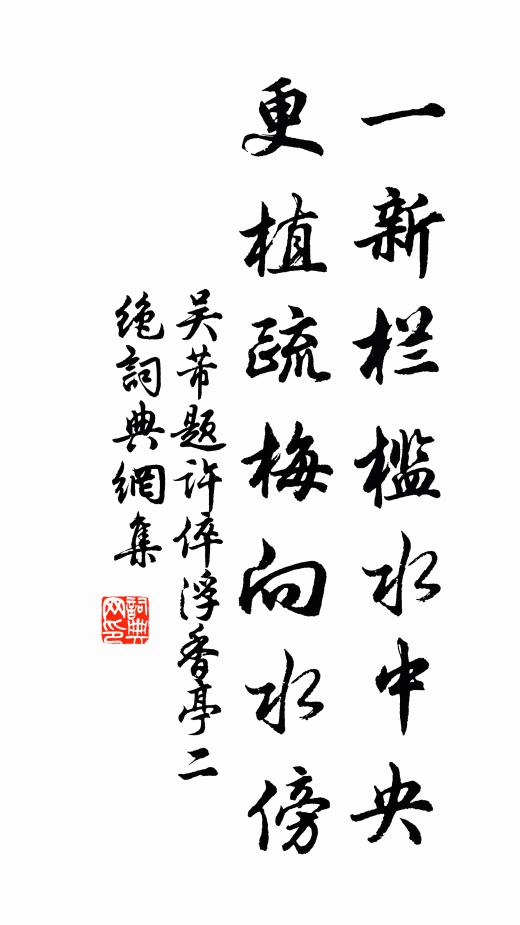 一新栏槛水中央
更植疏梅向水傍
吴芾题许倅浮香亭二
绝词典網集
詞典
网印